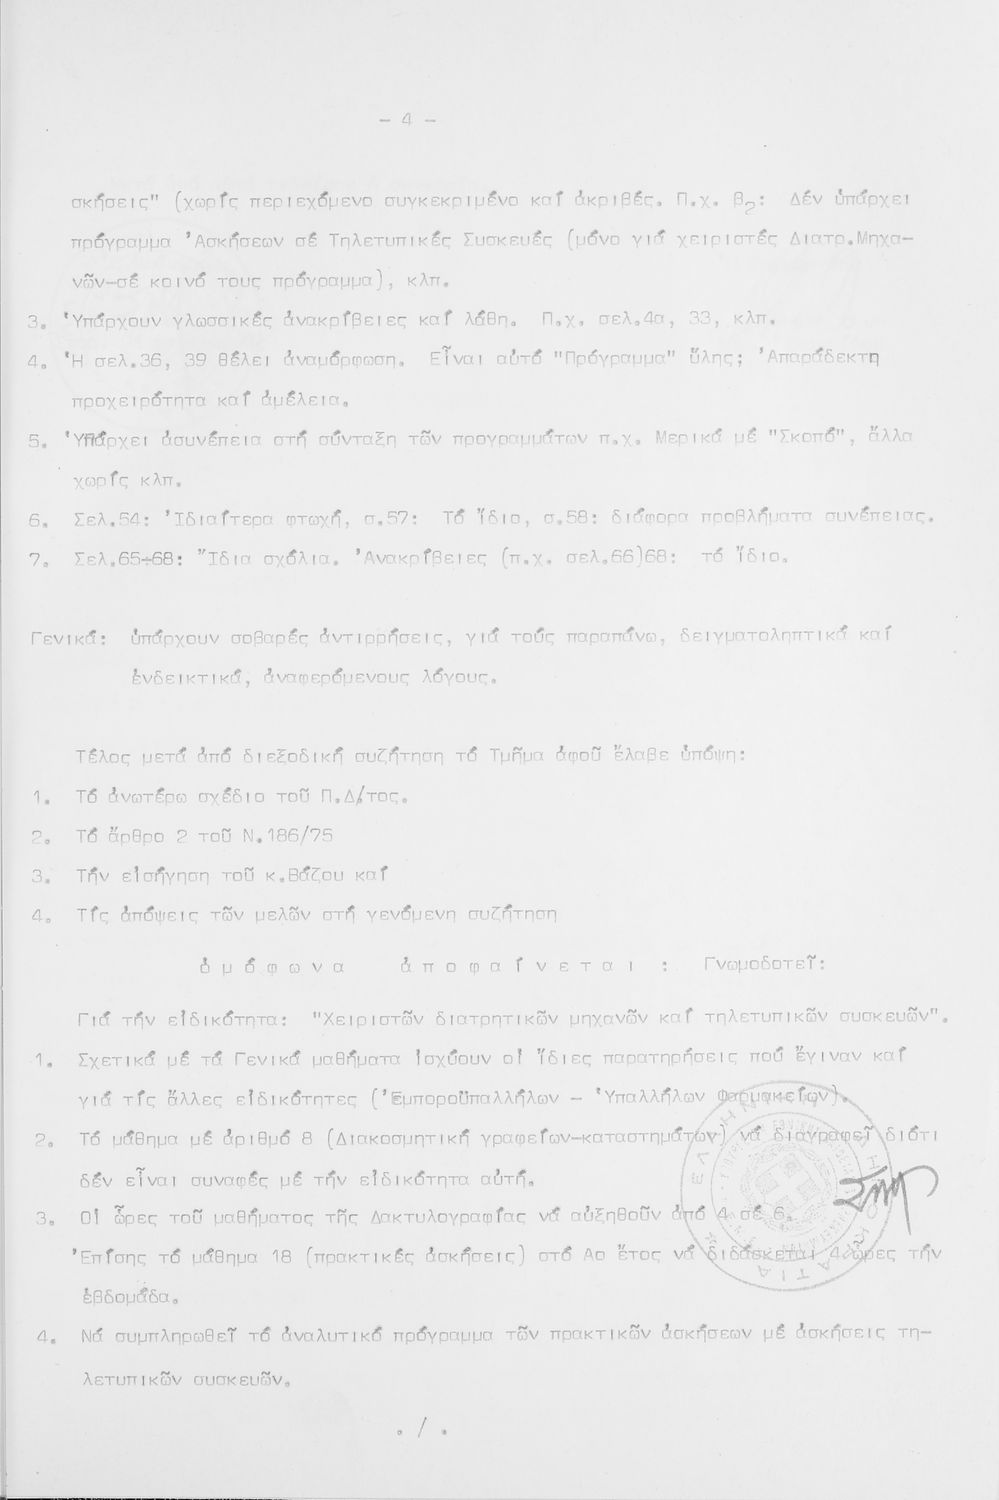 - 4 -
σκήσεις" (χωρίς περιεχόμενο συγκεκριμένο καί ἀκριβές. Π.χ. β2: Δέν ὑπάρχει
πρόγραμμα Ἀσκήσεων σέ Τηλετυπικές Συσκευές (μόνο γιά χειριστές Διατρ.Μηχα-
νῶν-σέ κοινό τους πρόγραμμα), κλπ.
3. Ὑπάρχουν γλωσσικές ἀνακρίβειες καί λάθη. Π.χ. σελ.4α, 33, κλπ.
4. Ἡ σελ.36, 39 θέλει ἀναμόρφωση. Εἶναι αὐτό "Πρόγραμμα" ὕλης; Ἀπαράδεκτη
προχειρότητα καί ἀμέλεια.
5. Ὑπάρχει ἀσυνέπεια στή σύνταξη τῶν προγραμμάτων π.χ. Μερικά μέ "Σκοπό", ἄλλα
χωρίς κλπ.
6. Σελ.54: Ἰδιαίτερα φτωχή, σ.57: Τό ἴδιο, σ.58: διάφορα προβλήματα συνέπειας.
7. Σελ.65÷68: Ἴδια σχόλια. Ἀνακρίβειες (π.χ. σελ.66)68: τό ἴδιο.
Γενικά: ὑπάρχουν σοβαρές ἀντιρρήσεις, γιά τούς παραπάνω, δειγματοληπτικά καί
ἐνδεικτικά, ἀναφερόμενους λόγους.
Τέλος μετά ἀπό διεξοδική συζήτηση τό Τμῆμα ἀφοῦ ἔλαβε ὑπόψη:
1. Τό ἀνωτέρω σχέδιο τοῦ Π.Δ/τος.
2. Τό ἄρθρο 2 τοῦ Ν.186/75
3. Τήν εἰσήγηση τοῦ κ.Βάζου καί
4. Τίς ἀπόψεις τῶν μελῶν στή γενόμενη συζήτηση
ὁ μ ό φ ω ν α ἀ π ο φ α ί ν ε τ α ι : Γνωμοδοτεῖ:
Γιά τήν εἰδικότητα: "Χειριστῶν διατρητικῶν μηχανῶν καί τηλετυπικῶν συσκευῶν".
1. Σχετικά μέ τά Γενικά μαθήματα ἰσχύουν οἱ ἴδιες παρατηρήσεις πού ἔγιναν καί
γιά τίς ἄλλες εἰδικότητες (Ἐμποροϋπαλλήλων - Ὑπαλλήλων Φαρμακείων).
2. Τό μάθημα μέ ἀριθμό 8 (Διακοσμητική γραφείων-καταστημάτων) νά διαγραφεῖ διότι
δέν εἶναι συναφές μέ τήν εἰδικότητα αὐτή.
3. Οἱ ὧρες τοῦ μαθήματος τῆς Δακτυλογραφίας νά αὐξηθοῦν ἀπό 4 σέ 6.
Ἐπίσης τό μάθημα 18 (πρακτικές ἀσκήσεις) στό Αο ἔτος νά διδάσκεται 4 ὧρες τήν
ἑβδομάδα.
4. Νά συμπληρωθεῖ τό ἀναλυτικό πρόγραμμα τῶν πρακτικῶν ἀσκήσεων μέ ἀσκήσεις τη-
λετυπικῶν συσκευῶν.
. / .
ΕΛΛΗΝΙΚΗ ΔΗΜΟΚΡΑΤΙΑ